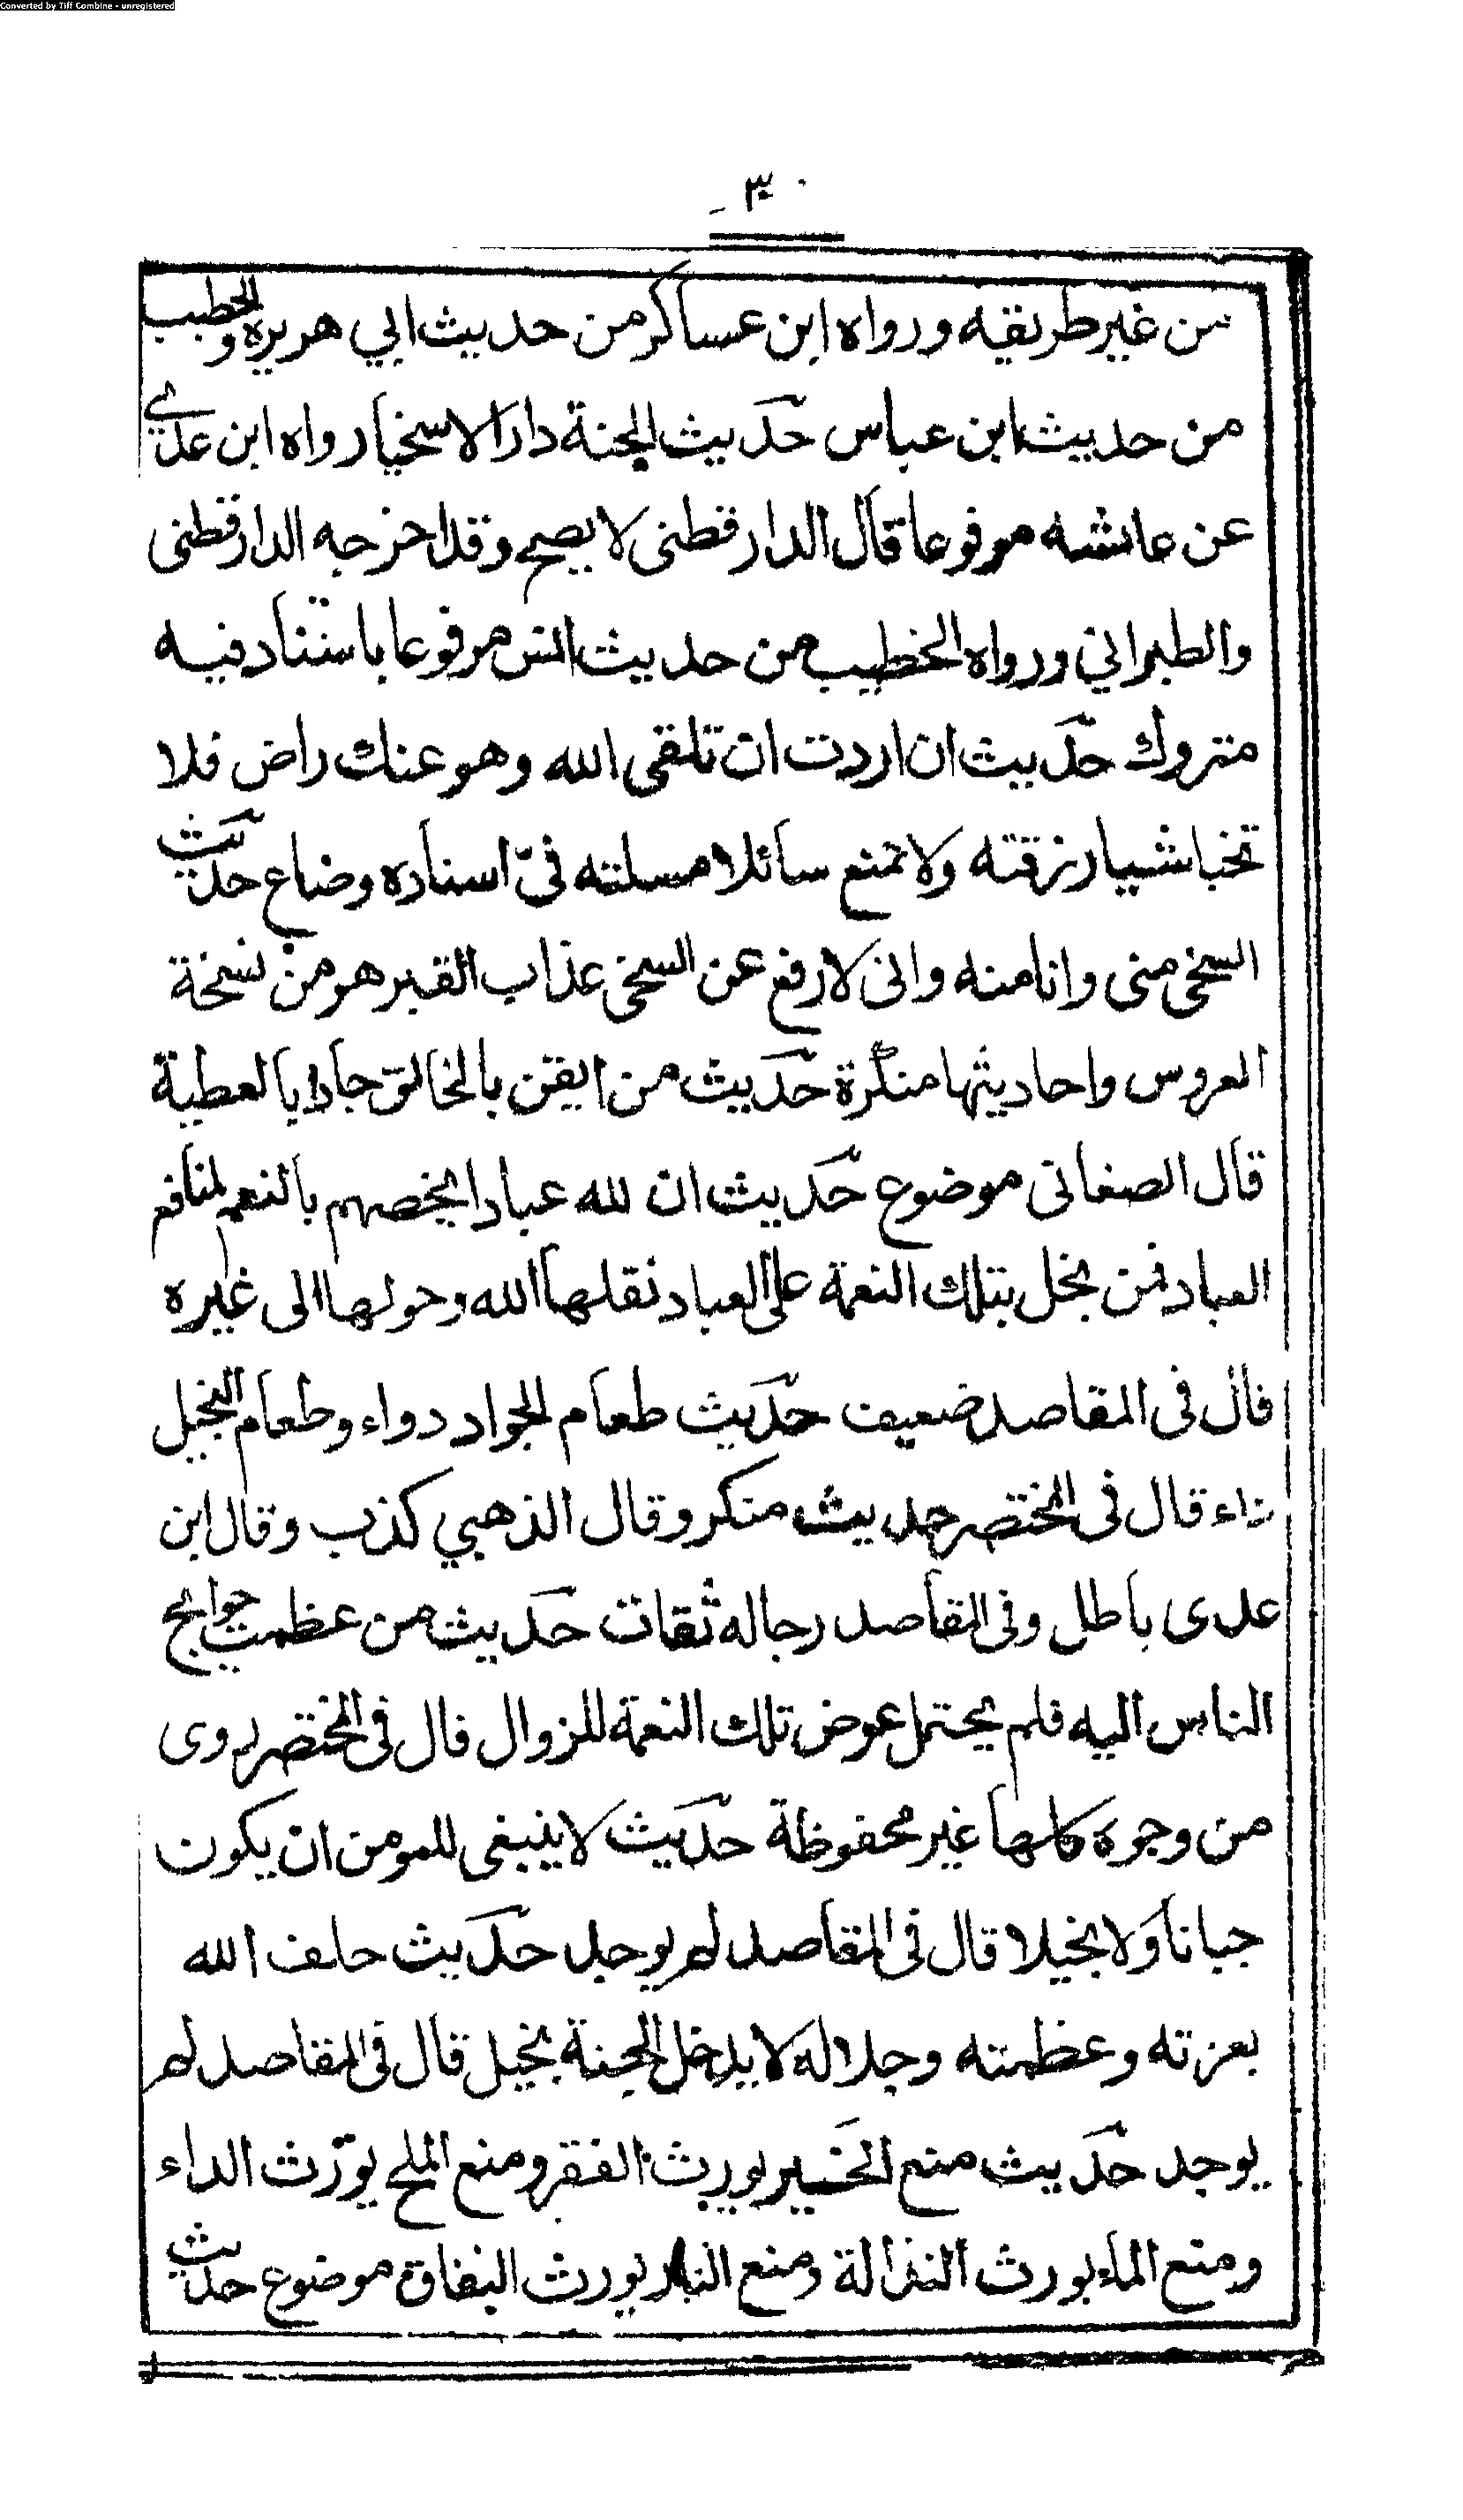 Converted by Tiff Combine - unregistered
٣٠
من غير طريقه ورواه ابن عساكر من حديث ابي هريره والخطيب
من حديث ابن عباس حديث الجنة دار الاسخيا رواه ابن عدي
عن عائشه مرفوعا قال الدارقطنى لا يصح وقد اخرجه الدارقطنى
والطبراني ورواه الخطيب من حديث انس مرفوعا باسناد فيه
متروك حديث ان اردت ان تلقى الله وهو عنك راض فلا
تخبا شيا رزقته ولا تمنع سائلا مسلته فى اسناده وضاع حديث
السخى منى وانا منه وانى لا رفع عن السخى عذاب القبر هو من نسخة
العروس واحاديثها منكرة حديث من ايقن بالخالق جاد بالعطية
قال الصغانى موضوع حديث ان لله عبادا يخصهم بالنعم لمنافع
العباد فمن بخل بتلك النعمة على العباد نقلها الله وحولها الى غيره
قال فى المقاصد ضعيف حديث طعام الجواد دواء وطعام البخيل
داء قال فى المختصر حديث منكر وقال الذهبي كذب وقال ابن
عدى باطل وفى المقاصد رجاله ثقات حديث من عظمت حوايج
الناس اليه فلم يحتمل عرض تلك النعمة للزوال قال فى المختصر روى
من وجوه كلها غير محفوظة حديث لا ينبغى للمومن ان يكون
جبانا ولا بخيلا قال فى المقاصد لم يوجد حديث حلف الله
بعزته وعظمته وجلاله لا يدخل الجنة بخيل قال فى المقاصد لم
يوجد حديث منع الخمير يورث الفقر ومنع الملح يورث الداء
ومنع الماء يورث النذالة ومنع النار يورث النفاق موضوع حديث